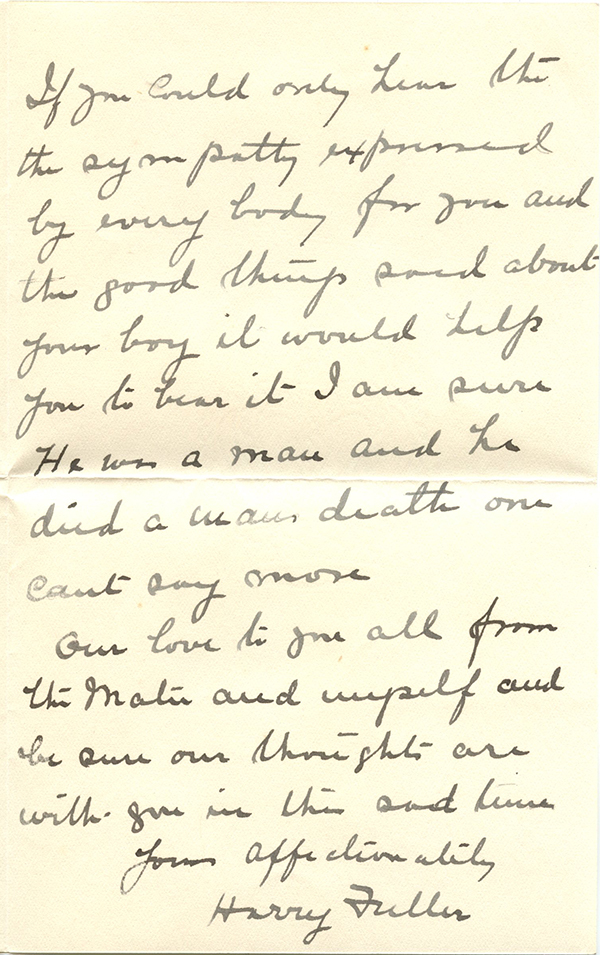 If you could only hear the
the sympathy expressed
by every body for you and
the good things said about
your boy it would help
you to bear it I am sure
He was a man and he
died a mans death one
cant say more
Our love to you all from
the Mater and myself and
be sure our thoughts are
with you in this sad time
Yours affectionately
Harry Fuller